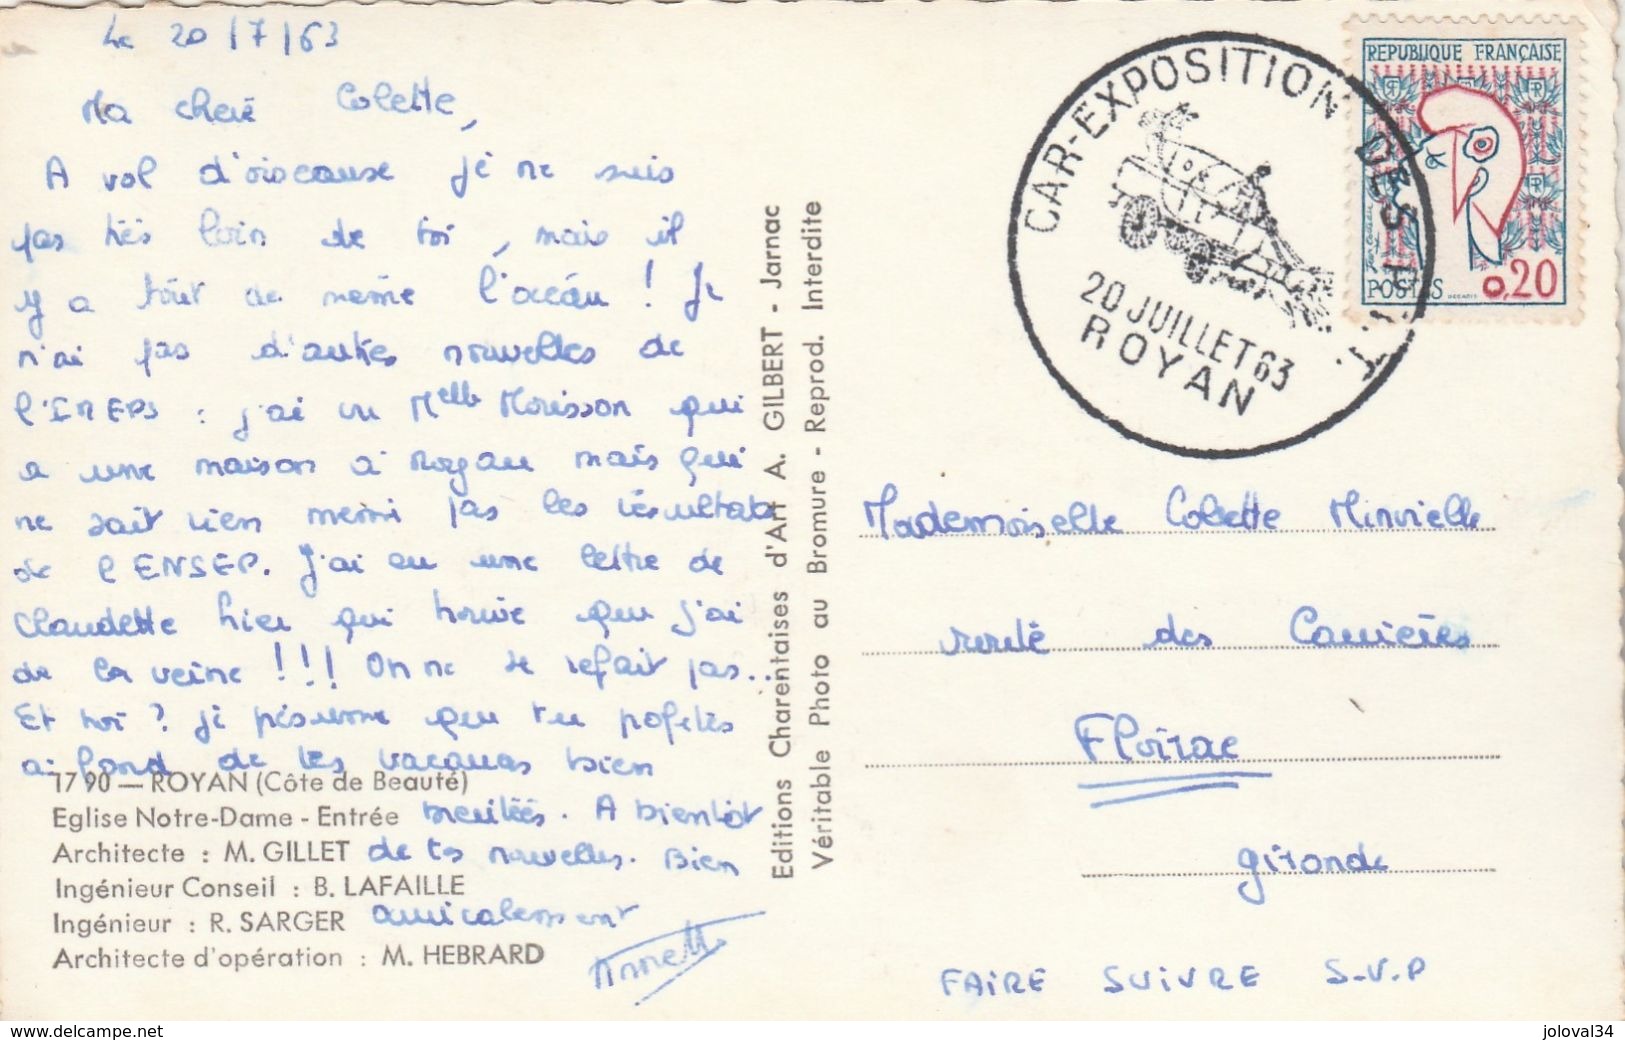 Le 20/7/63
Ma chère Colette,
A vol d'oiseause je ne suis
pas très loin de toi, mais il
y a tout de même l'océan ! Je
n'ai pas d'autres nouvelles de
l'IREPS : j'ai vu Melle Morisson qui
a une maison à Royan mais qui
ne sait rien même pas les résultats
de l'ENSEP. J'ai eu une lettre de
Claudette hier qui trouve que j'ai
de la veine !!! On ne se refait pas..
Et toi ? je présume que tu profites
à fond de tes vacances bien
méritées. A bientôt
de tes nouvelles. Bien
amicalement
Annette
1790 — ROYAN (Côte de Beauté)
Eglise Notre-Dame - Entrée
Architecte : M. GILLET
Ingénieur Conseil : B. LAFAILLE
Ingénieur : R. SARGER
Architecte d'opération : M. HEBRARD
Editions Charentaises d'Art A. GILBERT - Jarnac
Véritable Photo au Bromure - Reprod. Interdite
CAR-EXPOSITION DES P.T.T.
20 JUILLET 63
ROYAN
REPUBLIQUE FRANÇAISE
POSTES 0,20
Mademoiselle Colette Minvielle
route des Carrières
Floirac
Gironde
FAIRE SUIVRE S.V.P
www.delcampe.net
joloval34